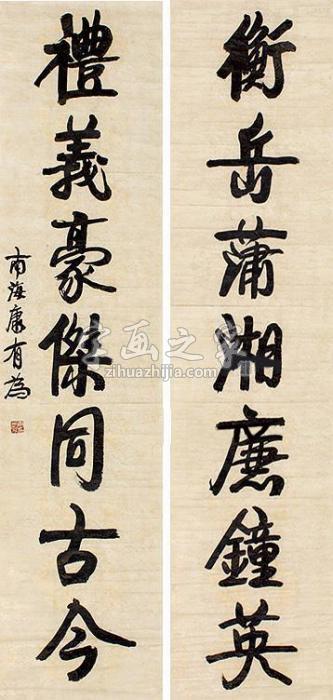 衡岳蒲湘廉鐘英
禮義豪傑同古今
南海康有為
字画之家
zihuazhijia.com